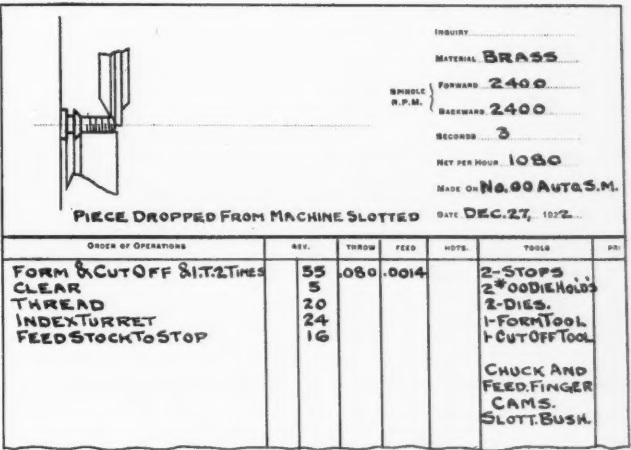 INQUIRY
MATERIAL BRASS
SPINDLE R.P.M. FORWARD 2400
BACKWARD 2400
SECONDS 3
NET PER HOUR 1080
MADE ON No.00 AUTO.S.M.
PIECE DROPPED FROM MACHINE SLOTTED DATE DEC.27, 1922
ORDER OF OPERATIONS REV. THROW FEED HDTS. TOOLS PRI
FORM & CUT OFF & I.T.2 TIMES 55 .080 .0014 2-STOPS
CLEAR 5 2 #00 DIE HOLD'S
THREAD 20 2-DIES.
INDEX TURRET 24 1-FORM TOOL
FEED STOCK TO STOP 16 1-CUT OFF TOOL
CHUCK AND
FEED.FINGER
CAMS.
SLOTT.BUSH.